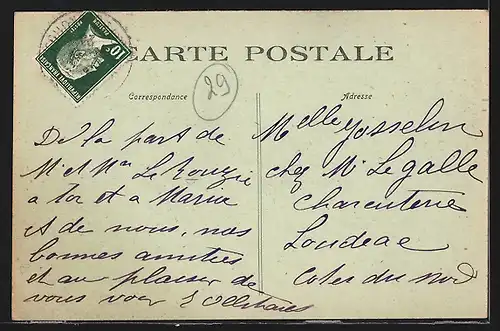 CARTE POSTALE
29
Correspondance
Adresse
De la part de
Mr et Mme Le Rouzic
a toi et a Maria
et de nous, nos
bonnes amitiés
et au plaisir de
vous voir
Melle Josselin
chez Mr Le galle
charcuterie
Loudeac
Cotes du nord
10c